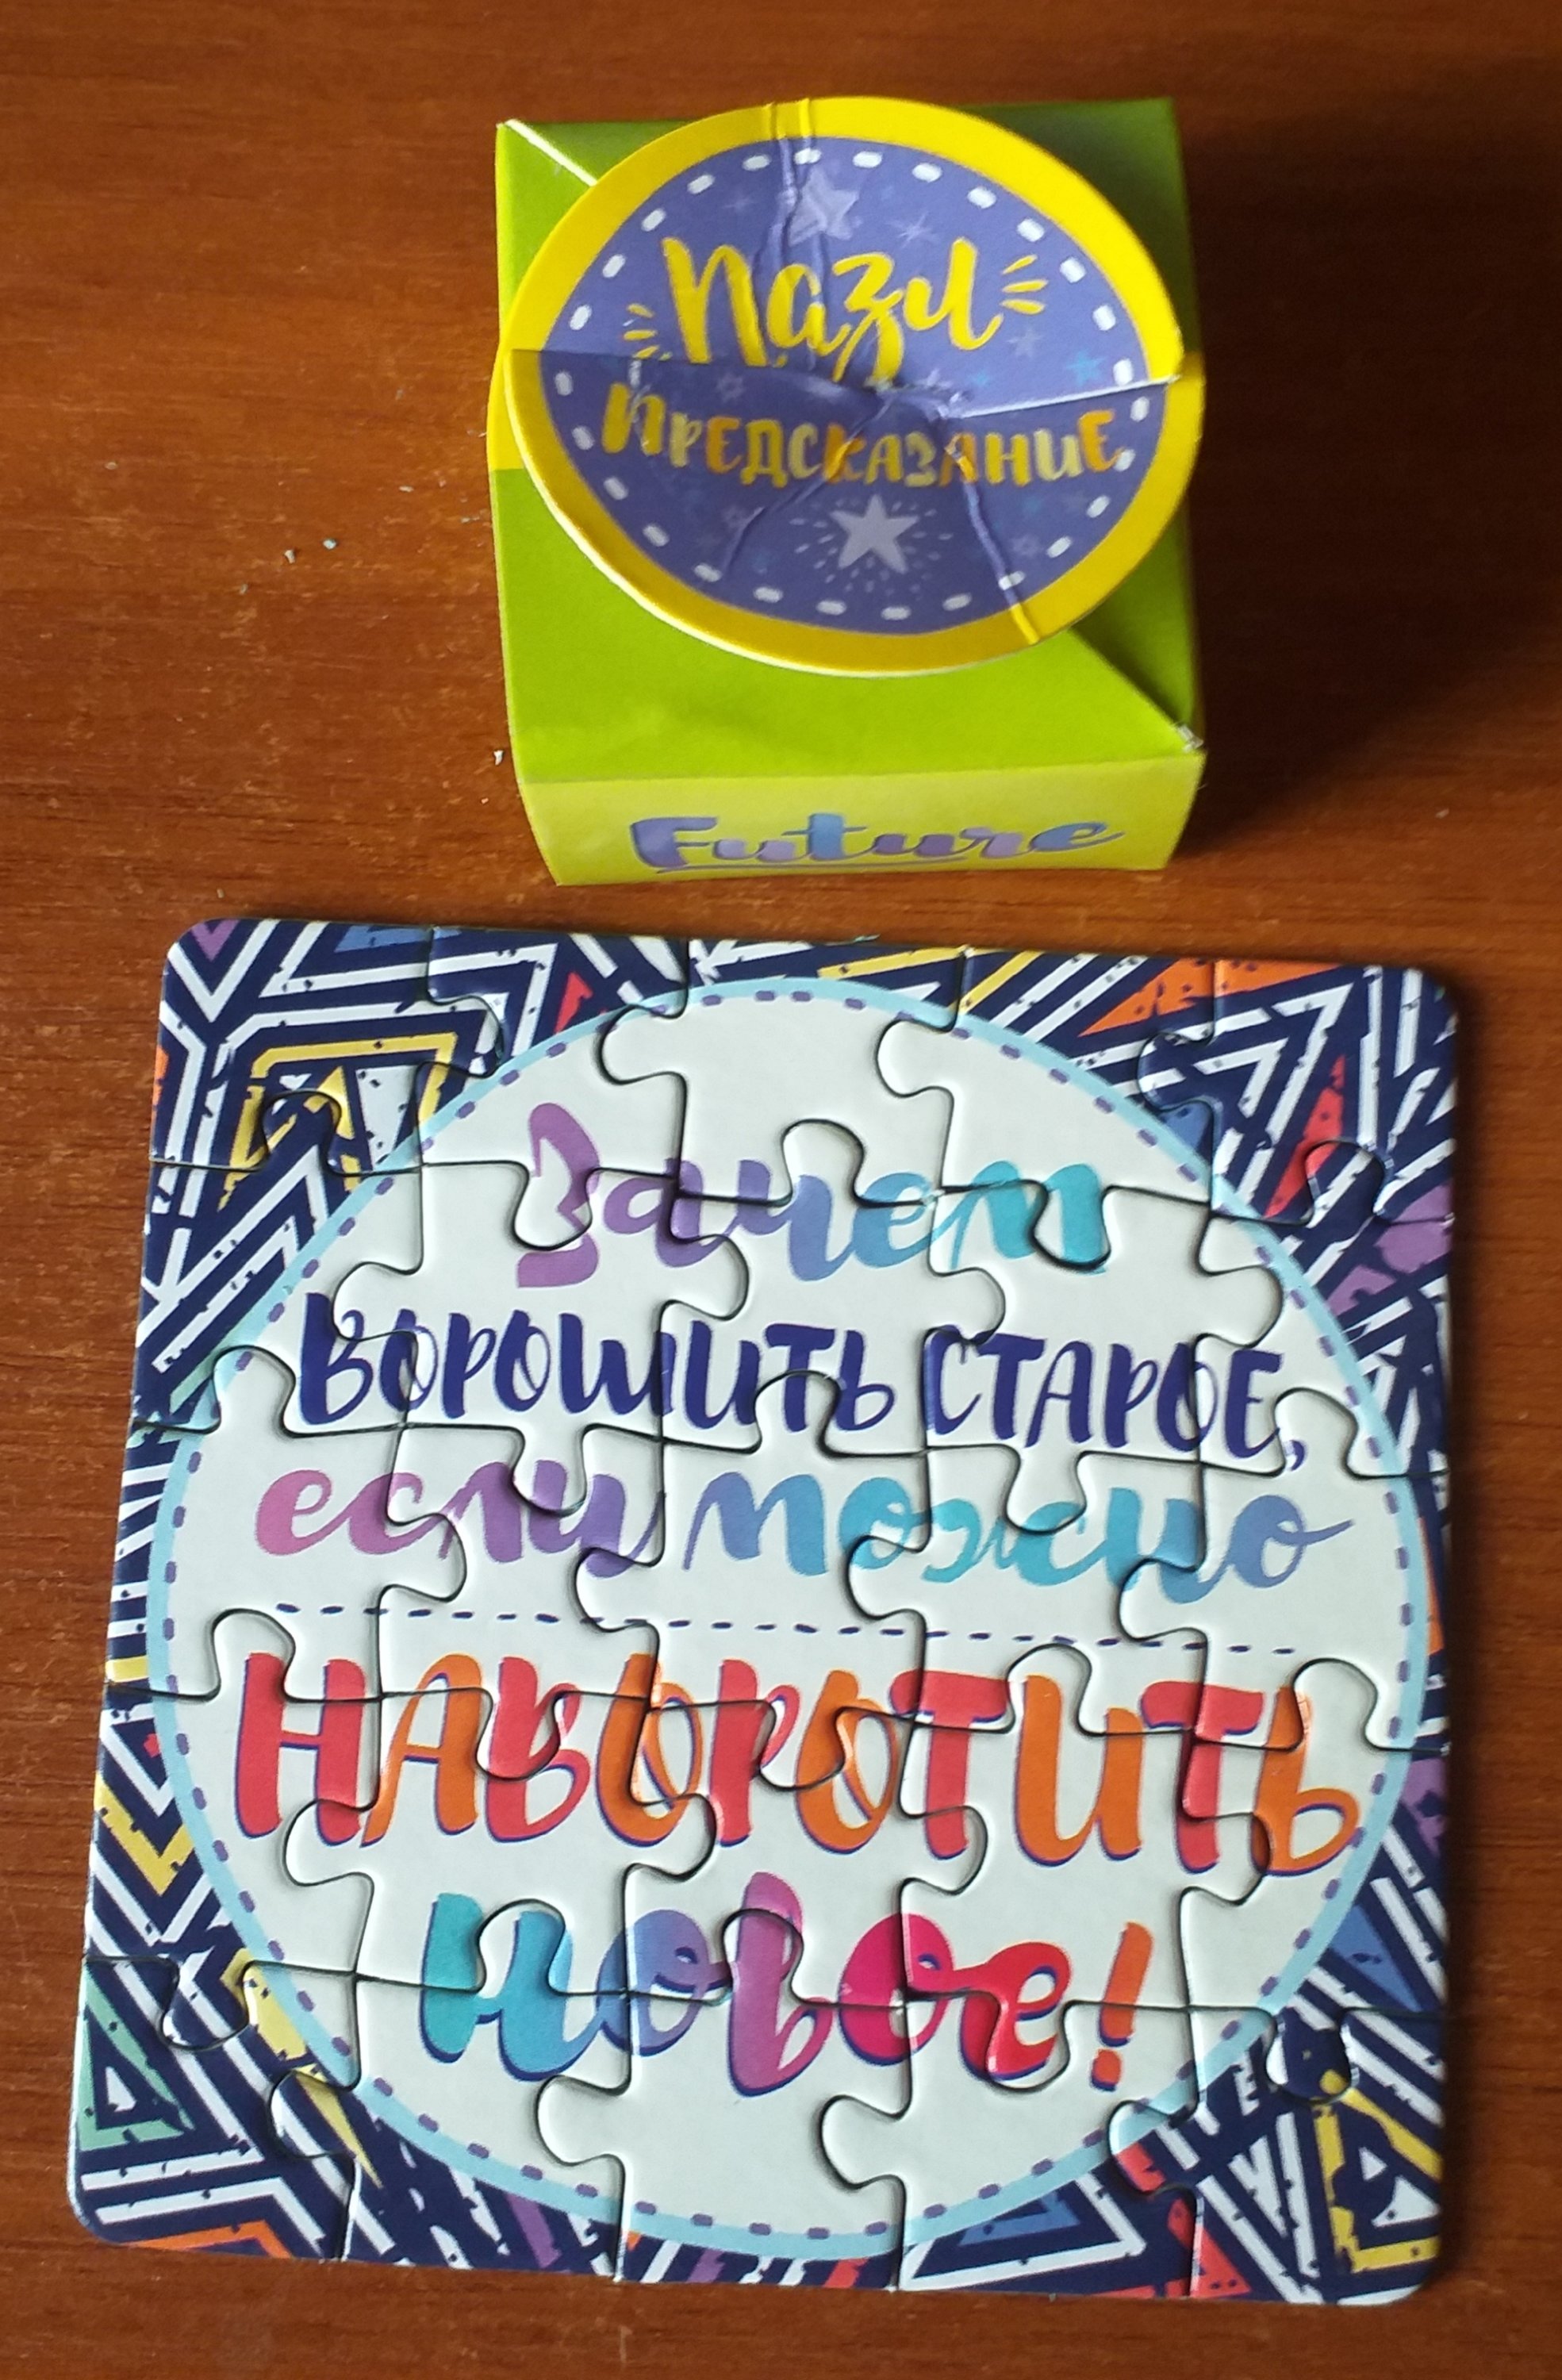 Пазл
ПРЕДСКАЗАНИЕ
Future
Зачем
ВОРОШИТЬ СТАРОЕ,
если можно
НАВОРОТИТЬ
новое!